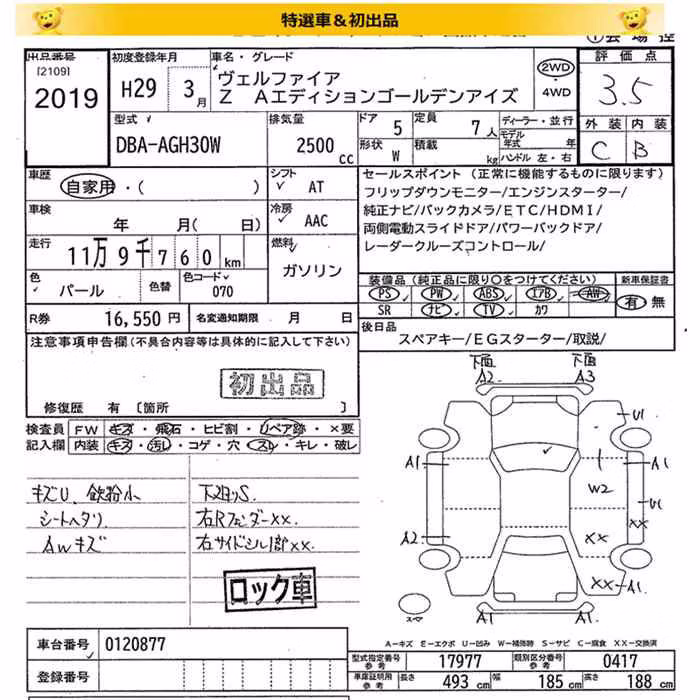 特選車＆初出品
① 会 場 控
出品番号
[2109]
2019
初度登録年月
H29 3月
車名・グレード
ヴェルファイア
Z Aエディションゴールデンアイズ
2WD
・
4WD
評価点
3.5
外装 内装
C B
型式
DBA-AGH30W
排気量
2500 cc
ドア 5
定員 7人
形状 W
積載 kg
ディーラー・並行
モデル年式 年
ハンドル 左・右
車歴
自家用・( )
シフト AT
車検
年 月( 日)
冷房 AAC
走行
11万9千760km
燃料
ガソリン
色
パール
色替
色コード
070
R券 16,550円
名変通知期限 月 日
セールスポイント（正常に機能するものに限ります）
フリップダウンモニター/エンジンスターター/
純正ナビ/バックカメラ/ETC/HDMI/
両側電動スライドドア/パワーバックドア/
レーダークルーズコントロール/
装備品（純正品に限り○をつけてください）
PS PW ABS エアB AW
SR ナビ TV カワ
新車保証書
有 無
後日品
スペアキー/EGスターター/取説/
注意事項申告欄(不具合内容等は具体的に記入して下さい)
初出品
修復歴 有 〔箇所 〕
検査員 FW キズ・飛石・ヒビ割・リペア跡・×要
記入欄 内装 キズ・汚レ・コゲ・穴・スレ・キレ・破レ
キズU、鉄粉小
シートヘタリ
AWキズ
下廻りS.
右Rフェンダーxx.
右サイドシル1部xx.
ロック車
下面 下面
A2 A3
U1
A1 A1
W2
U1
xx
A2 xx
xx A1
スペア
A1 A1
A－キズ E－エクボ U－凹み W－補修跡 S－サビ C－腐食 XX－交換済
車台番号 0120877
登録番号
型式指定番号 参考 17977
類別区分番号 参考 0417
車庫証明用 参考 長さ 493 cm 幅 185 cm 高さ 188 cm